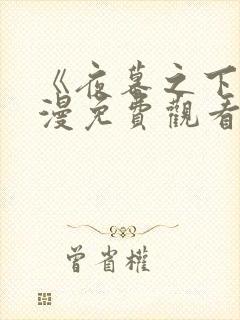 《夜幕之下
漫免費觀看
曾省權